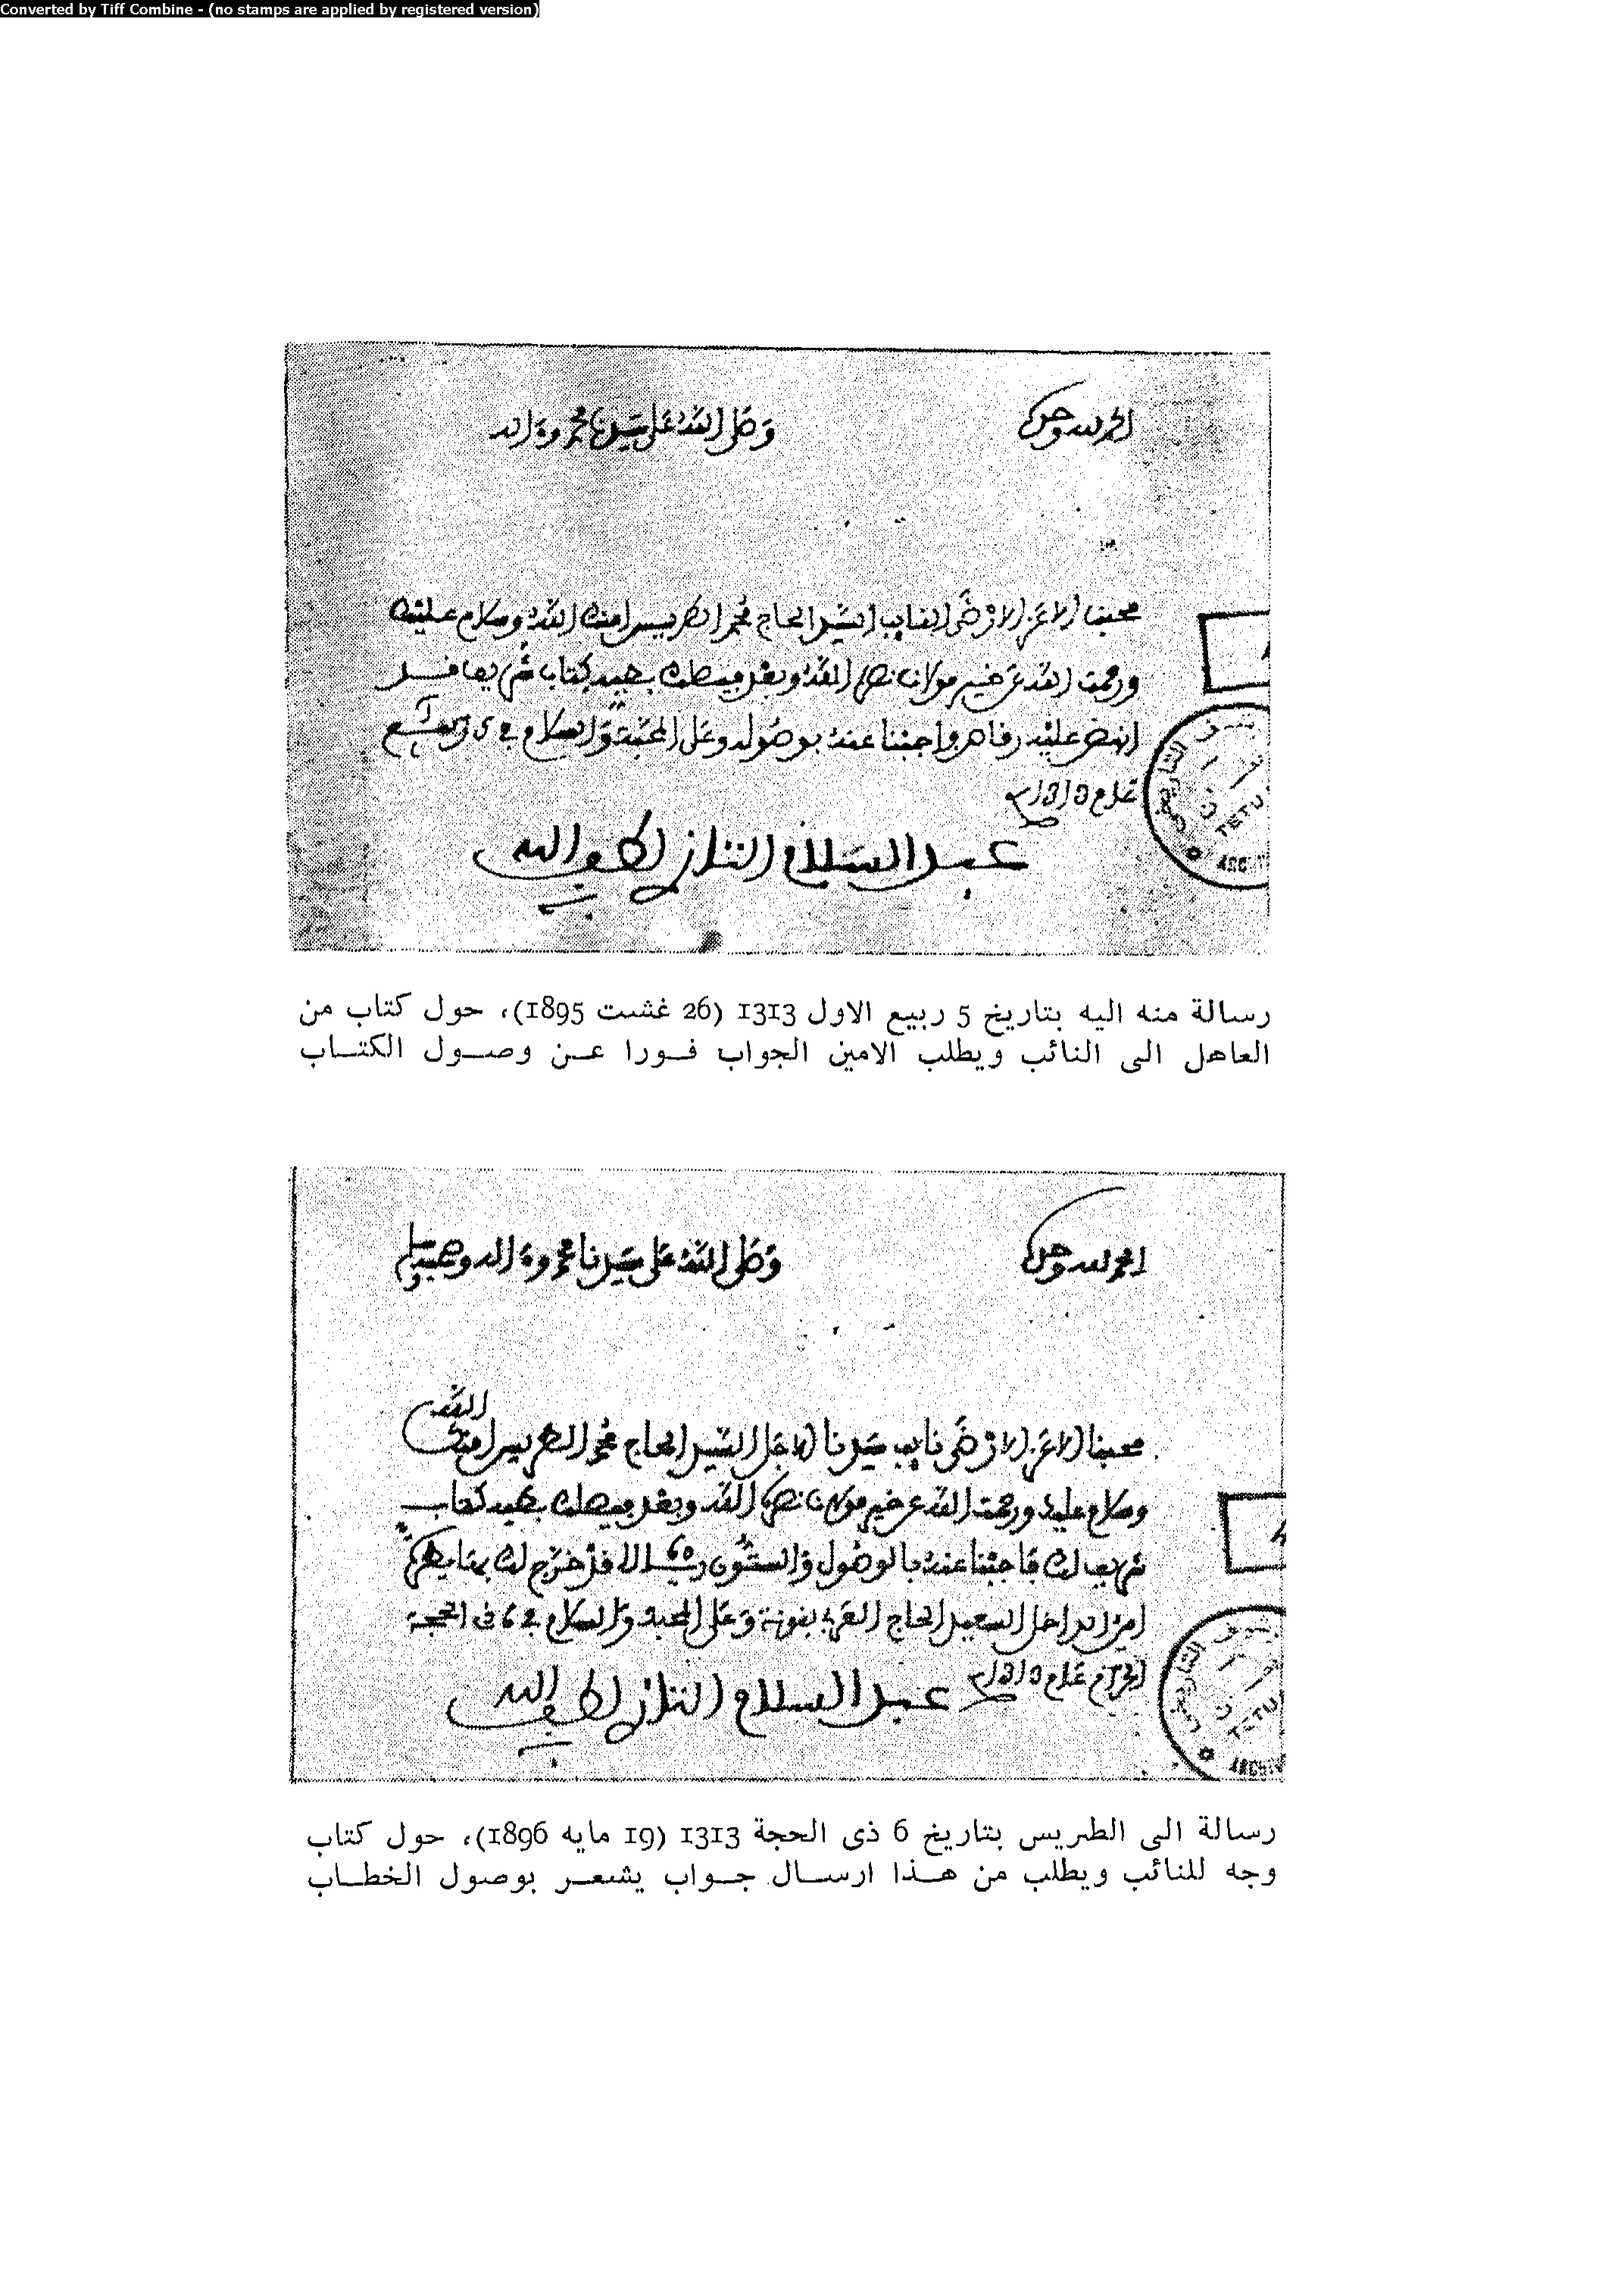 Converted by Tiff Combine - (no stamps are applied by registered version)
الحمد لله وحده
وصلى الله على سيدنا محمد وءاله
محبنا الاعز الارضى النايب السيد الحاج محمد الطريس امنك الله وسلام عليك
ورحمت الله عن خير مولانا نصره الله وبعد فيصلك بطيه كتاب شريف
عليه وأجبنا عنه بوصوله وعلى المحبة والسلام في 5 ربيع
عام 1313
عبد السلام التازي لطف الله به
TETU
رسالة منه اليه بتاريخ 5 ربيع الاول 1313 (26 غشت 1895)، حول كتاب من
العاهل الى النائب ويطلب الامين الجواب فورا عن وصول الكتاب
الحمد لله وحده
وصلى الله على سيدنا محمد وءاله وصحبه وسلم
محبنا الاعز الارضى نايب سيدنا الاجل السيد الحاج محمد الطريس امنك الله
وسلام عليك ورحمت الله عن خير مولانا نصره الله وبعد فيصلك بطيه كتاب
شريف لك فاجبنا عنه بالوصول
الحاج العربي بنونة وعلى المحبة والسلام في 6 ذي الحجة
الحرام عام 1313
عبد السلام التازي لطف الله به
TETU
رسالة الى الطريس بتاريخ 6 ذى الحجة 1313 (19 مايه 1896)، حول كتاب
وجه للنائب ويطلب من هذا ارسال جواب يشعر بوصول الخطاب